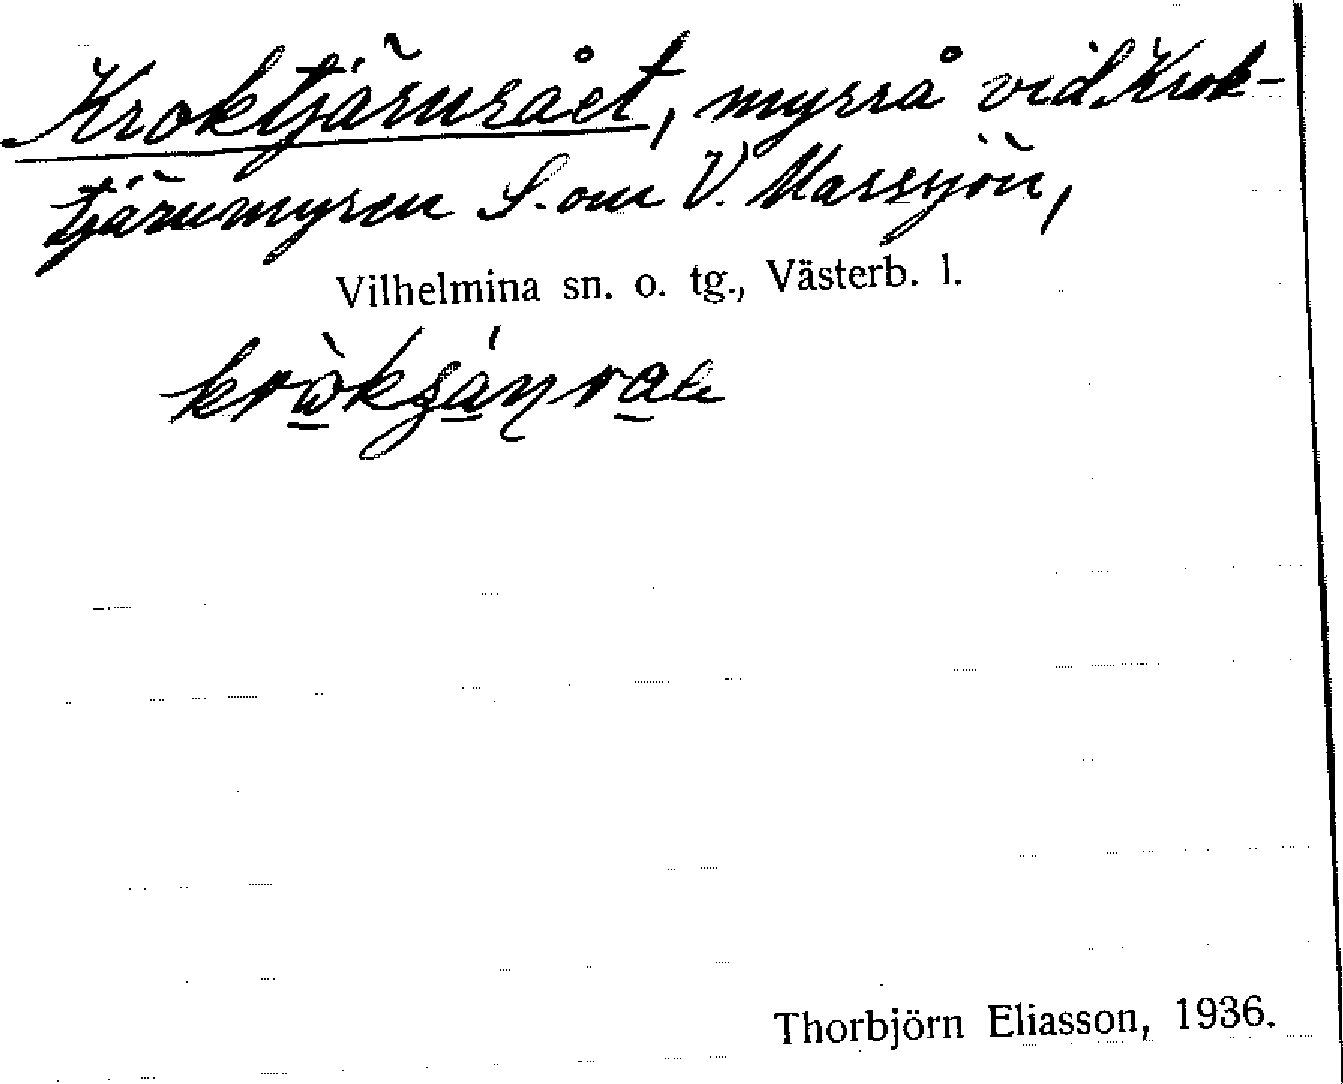 Kroktjärnrået, myrrå vid Krok-
tjärnmyren S. om V. Marssjön,
Vilhelmina sn. o. tg., Västerb. l.
Thorbjörn Eliasson, 1936.